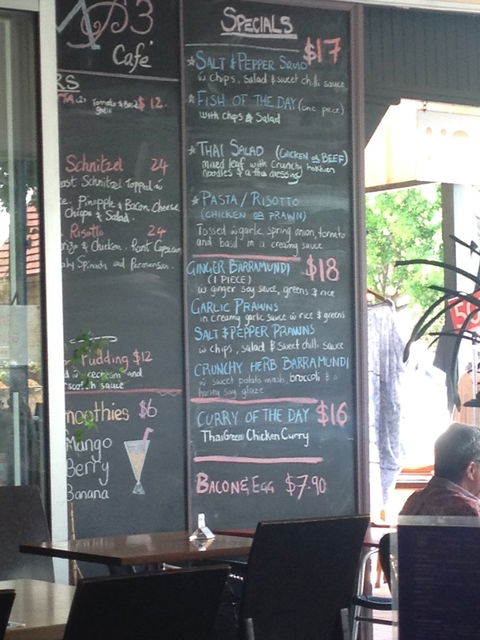 Café
RS
TA (2) Tomato & Basil $12.
Schnitzel 24
Schnitzel Topped w
Pineapple & Bacon, Cheese,
Chips & Salad.
Risotto 24
& Chicken. Roast Capsicum
Baby Spinach and Parmesan.
Pudding $12
icecream and
sauce
moothies $6
Mango
Berry
Banana
SPECIALS
$17
* SALT & PEPPER SQUID
w chips, salad & sweet chilli sauce
* FISH OF THE DAY (one piece)
with chips & salad
* THAI SALAD (CHICKEN OR BEEF)
mixed leaf with crunchy hokkien
noodles & a thai dressing
* PASTA/RISOTTO
(CHICKEN OR PRAWN)
Tossed w garlic, spring onion, tomato
and basil in a creamy sauce
GINGER BARRAMUNDI $18
(1 PIECE)
w ginger soy sauce, greens & rice
GARLIC PRAWNS
in creamy garlic sauce w rice & greens
SALT & PEPPER PRAWNS
w chips, salad & sweet chilli sauce
CRUNCHY HERB BARRAMUNDI
w sweet potato mash, broccoli & a
honey soy glaze
CURRY OF THE DAY $16
Thai Green Chicken Curry
BACON & EGG $7.90